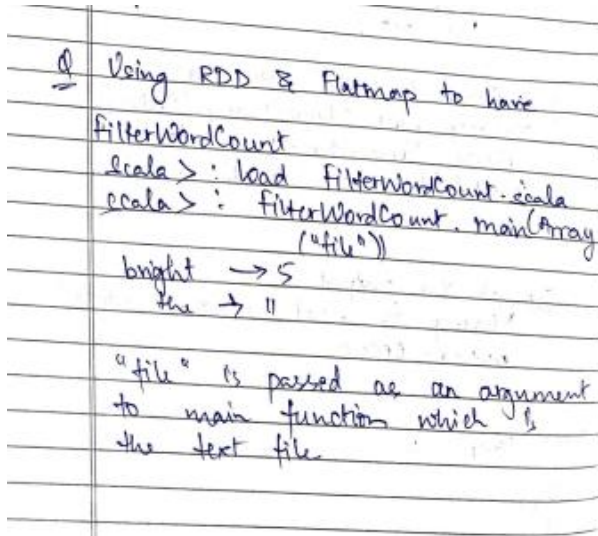 Q Using RDD & Flatmap to have
filterWordCount
scala> : load filterWordCount.scala
scala> : filterWordCount.main(Array
("file"))
bright → 5
the → 11
"file" is passed as an argument
to main function which is
the text file